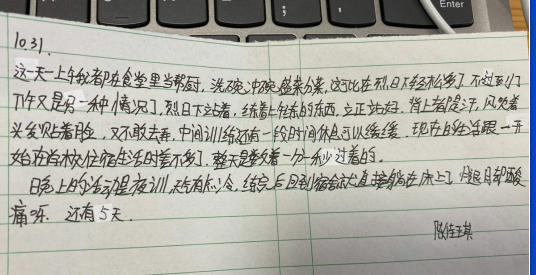 10.31.
这一天一上午我都在食堂里当帮厨,洗碗冲碗盛菜分菜,这可比在烈日下轻松多了。不过到了
下午又是另一种情况了,烈日下站着,练着上午练的东西,立正站好,背上都是汗,风吹着
头发贴着脸,又不敢去弄,中间训练还有一段时间休息可以缓缓,现在的生活跟一开
始在学校住宿生活时差不多了,整天是数着一分一秒过着的。
晚上的活动是夜训,天气有点冷,练完后回到宿舍就直接躺在床上了,腿脚酸
痛呀。还有5天。
陈佳琪